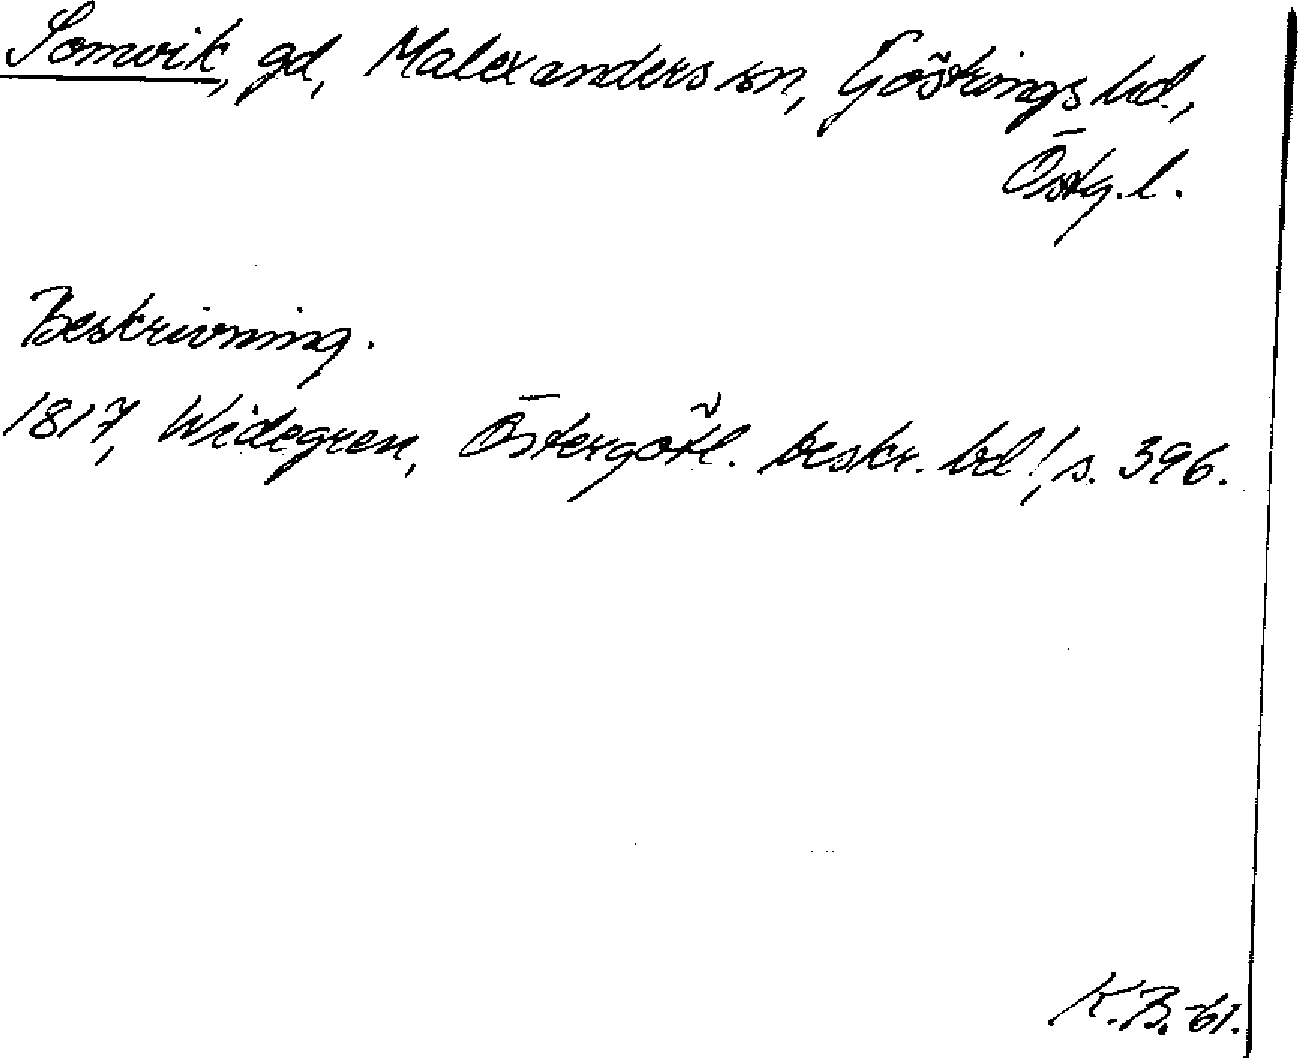 Somvik, gd, Malexanders sn, Göstrings hd.,
Östg. l.
Beskrivning.
1817, Widegren, Östergötl. beskr. bd 1, s. 396.
K.B. -61.